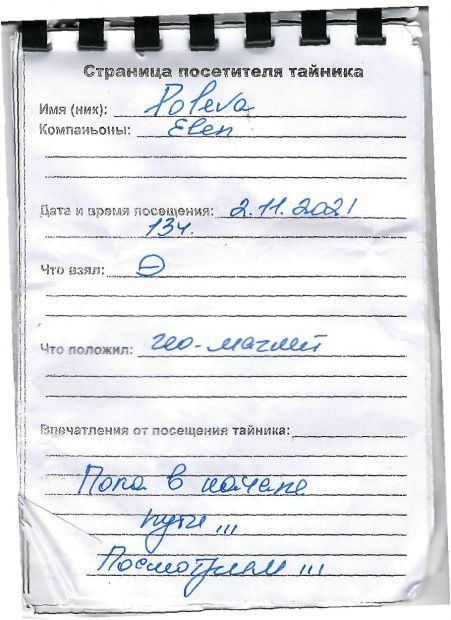 Страница посетителя тайника
Имя (ник): Poleva
Компаньоны: Elen
Дата и время посещения: 2.11.2021
13ч.
Что взял: ⊖
Что положил: гео-магнит
Впечатления от посещения тайника:
Пока в начале
пути !!!
Посмотрим !!!